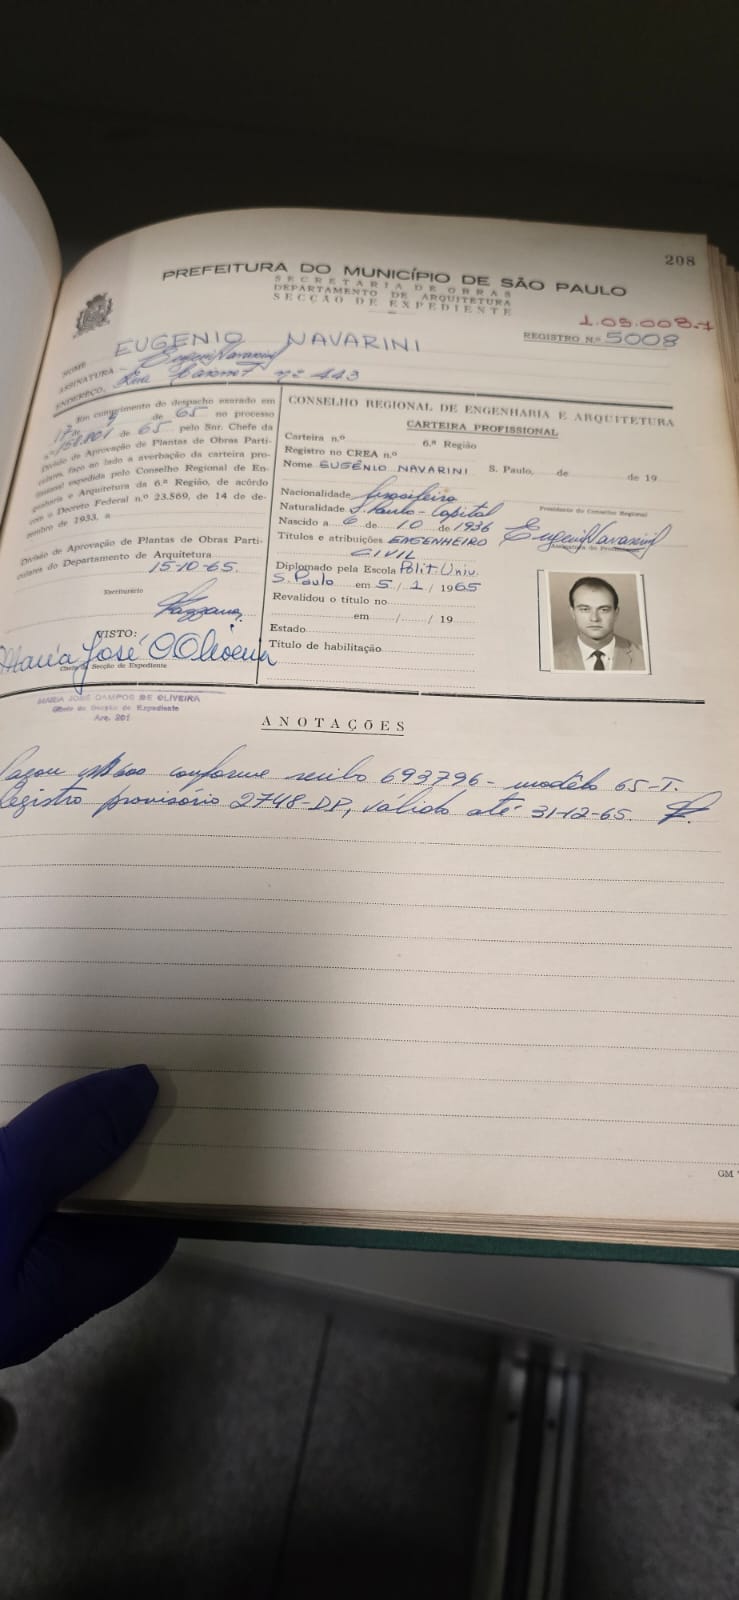 208
PREFEITURA DO MUNICÍPIO DE SÃO PAULO
SECRETARIA DE OBRAS
DEPARTAMENTO DE ARQUITETURA
SECÇÃO DE EXPEDIENTE
1.05.008-1
REGISTRO N.º 5008
NOME EUGENIO NAVARINI
ASSINATURA Eugenio Navarini
ENDEREÇO, Rua nº 443
Em cumprimento do despacho exarado em
17 de 9 de 65 no processo
n.º 158.801 de 65 pelo Snr. Chefe da
Divisão de Aprovação de Plantas de Obras Parti-
culares, faço ao lado a averbação da carteira pro-
fissional expedida pelo Conselho Regional de En-
genharia e Arquitetura da 6.ª Região, de acôrdo
com o Decreto Federal n.º 23.569, de 14 de de-
zembro de 1933, a
Divisão de Aprovação de Plantas de Obras Parti-
culares do Departamento de Arquitetura
15-10-65.
Escriturário
VISTO:
Maria José C Oliveira
Chefe da Secção de Expediente
MARIA JOSÉ CAMPOS DE OLIVEIRA
Chefe da Secção de Expediente
Arq. 201
CONSELHO REGIONAL DE ENGENHARIA E ARQUITETURA
CARTEIRA PROFISSIONAL
Carteira n.º 6.ª Região
Registro no CREA n.º
Nome EUGÊNIO NAVARINI S. Paulo, de de 19
Nacionalidade brasileira
Presidente do Conselho Regional
Naturalidade S. Paulo - Capital
Nascido a 6 de 10 de 1936 Eugenio Navarini
Títulos e atribuições ENGENHEIRO Assinatura do Profissional
CIVIL
Diplomado pela Escola Polit. Univ.
S. Paulo em 5 / 1 / 1965
Revalidou o título no
em / / 19
Estado
Título de habilitação
ANOTAÇÕES
Pagou conforme recibo 693796 - modêlo 65-T.
Registro provisório 2748-DP, válido até 31-12-65.
GM